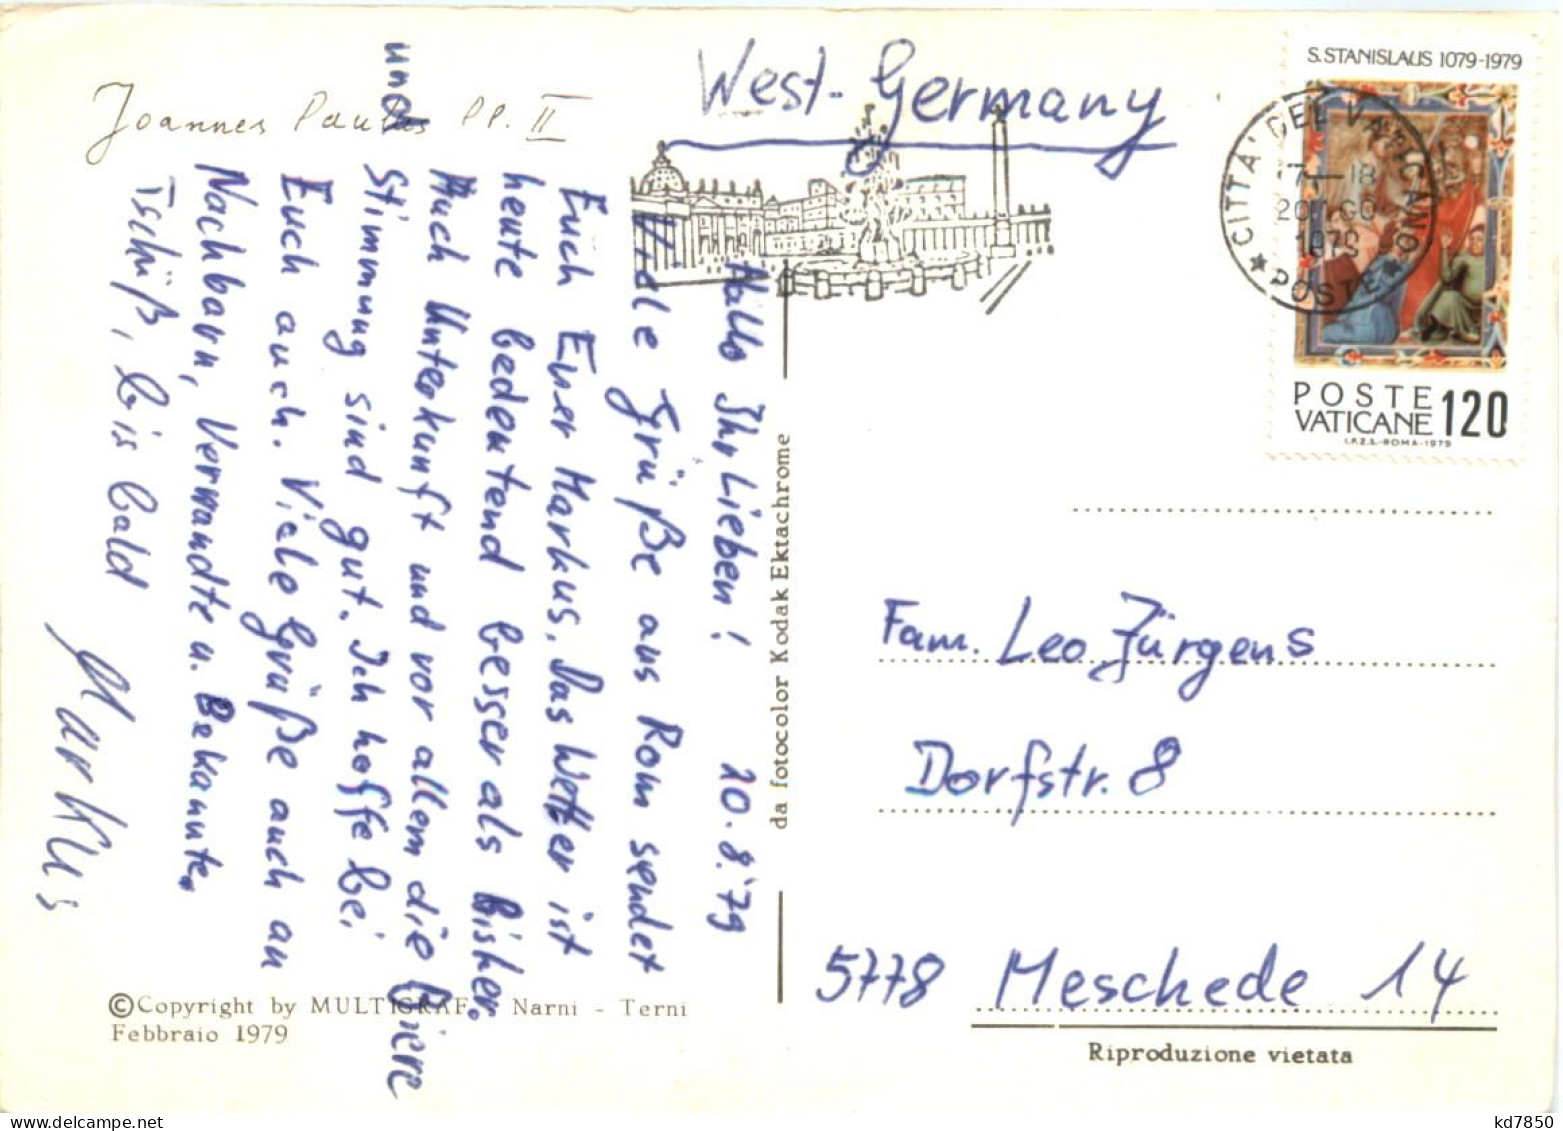 West-Germany
S.STANISLAUS 1079-1979
CITTA' DEL VATICANO
17-18
1979
POSTE
POSTE
VATICANE 120
I.P.Z.S.-ROMA-1979
Joannes Paulus PP. II
Hallo Ihr Lieben! 20.8.79
Viele Grüße aus Rom sendet
Euch Euer Markus. Das Wetter ist
heute bedeutend besser als bisher.
Auch Unterkunft und vor allem die Biere
und
Stimmung sind gut. Ich hoffe bei
Euch auch. Viele Grüße auch an
Nachbarn, Verwandte u. Bekannte.
Tschüß, bis bald
Markus
da fotocolor Kodak Ektachrome
Fam. Leo Jürgens
Dorfstr. 8
5778 Meschede 14
©Copyright by MULTIGRAF. Narni - Terni
Febbraio 1979
Riproduzione vietata
kd7850